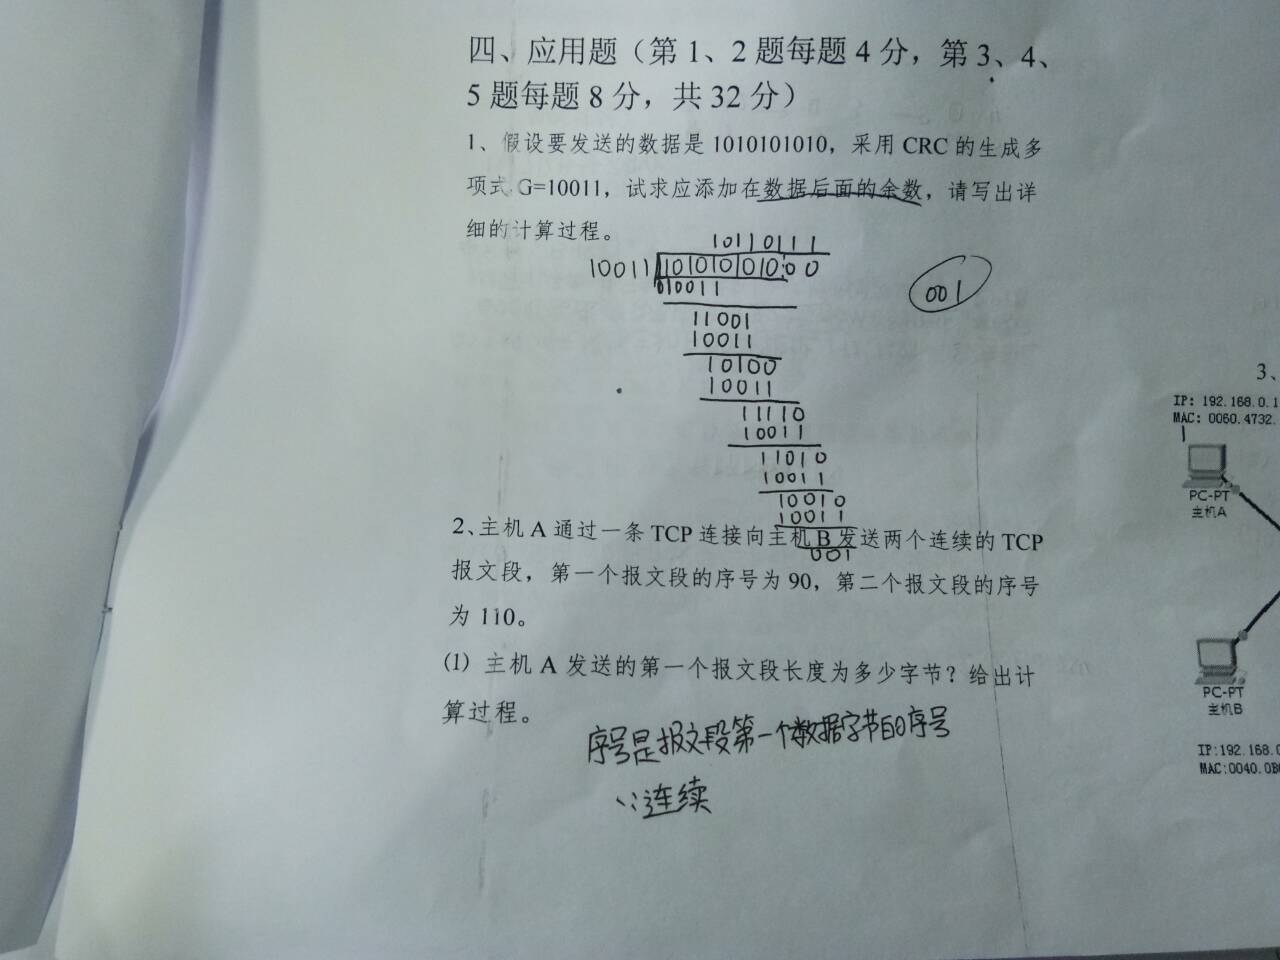 四、应用题（第1、2题每题4分，第3、4、
5题每题8分，共32分）
1、假设要发送的数据是1010101010，采用CRC的生成多
项式G=10011，试求应添加在数据后面的余数，请写出详
细的计算过程。
10110111
10011 101010101000
001
010011
11001
10011
10100
10011
11110
10011
11010
10011
10010
10011
001
2、主机A通过一条TCP连接向主机B发送两个连续的TCP
报文段，第一个报文段的序号为90，第二个报文段的序号
为110。
(1) 主机A发送的第一个报文段长度为多少字节？给出计
算过程。
序号是报文段第一个数据字节的序号
∵连续
3、
IP: 192.168.0.1
MAC: 0060.4732.
PC-PT
主机A
PC-PT
主机B
IP:192.168.0
MAC:0040.0B